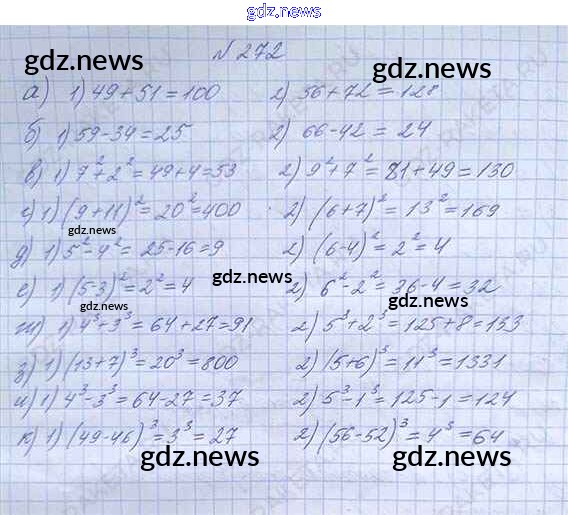 gdz.news
№ 272
gdz.news gdz.news
а) 1) 49+51=100 2) 56+72=128
б) 1) 59-34=25 2) 66-42=24
в) 1) 7²+2²=49+4=53 2) 9²+7²=81+49=130
г) 1) (9+11)²=20²=400 2) (6+7)²=13²=169
gdz.news
д) 1) 5²-4²=25-16=9 2) (6-4)²=2²=4
gdz.news
е) 1) (5-3)²=2²=4 2) 6²-2²=36-4=32
gdz.news gdz.news
ж) 1) 4³+3³=64+27=91 2) 5³+2³=125+8=133
з) 1) (13+7)³=20³=800 2) (5+6)³=11³=1331
и) 1) 4³-3³=64-27=37 2) 5³-1³=125-1=124
к) 1) (49-46)³=3³=27 2) (56-52)³=4³=64
gdz.news gdz.news